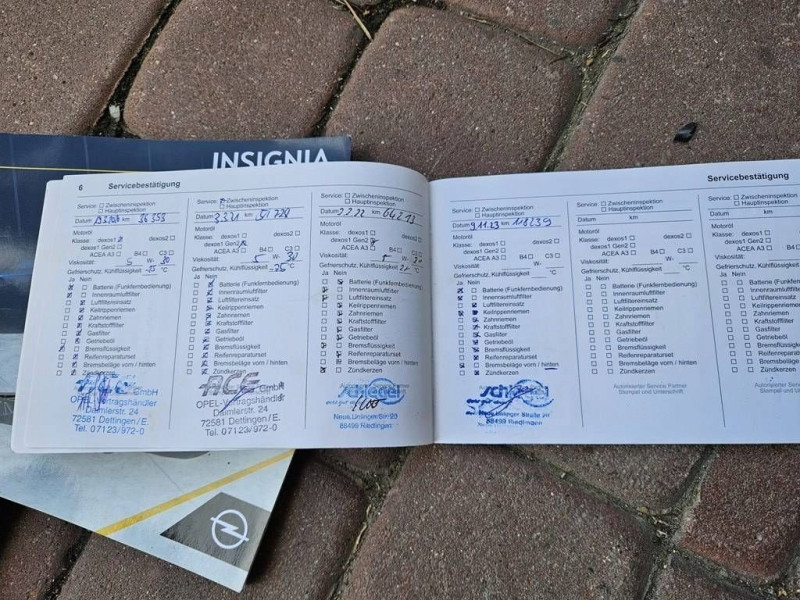 INSIGNIA
6 Servicebestätigung
Service: Zwischeninspektion
Hauptinspektion
Datum km 36 353
Motoröl
Klasse: dexos1 dexos2
dexos1 Gen2
ACEA A3 B4 C3
Viskosität: 5 W- 30
Gefrierschutz, Kühlflüssigkeit -25 °C
Ja Nein
Batterie (Funkfernbedienung)
Innenraumluftfilter
Luftfiltereinsatz
Keilrippenriemen
Zahnriemen
Kraftstofffilter
Gasfilter
Getriebeöl
Bremsflüssigkeit
Reifenreparaturset
Bremsbeläge vorn / hinten
Zündkerzen
ACE GmbH
OPEL-Vertragshändler
Daimlerstr. 24
72581 Dettingen/E.
Tel. 07123/972-0
Service: Zwischeninspektion
Hauptinspektion
Datum 3.3.21 km 51 728
Motoröl
Klasse: dexos1 dexos2
dexos1 Gen2
ACEA A3 B4 C3
Viskosität: 5 W- 30
Gefrierschutz, Kühlflüssigkeit -25 °C
Ja Nein
Batterie (Funkfernbedienung)
Innenraumluftfilter
Luftfiltereinsatz
Keilrippenriemen
Zahnriemen
Kraftstofffilter
Gasfilter
Getriebeöl
Bremsflüssigkeit
Reifenreparaturset
Bremsbeläge vorn / hinten
Zündkerzen
ACE GmbH
OPEL-Vertragshändler
Daimlerstr. 24
72581 Dettingen/E.
Tel. 07123/972-0
Service: Zwischeninspektion
Hauptinspektion
Datum km
Motoröl
Klasse: dexos1 dexos2
dexos1 Gen2
ACEA A3 B4 C3
Viskosität: 5 W-
Gefrierschutz, Kühlflüssigkeit °C
Ja Nein
Batterie (Funkfernbedienung)
Innenraumluftfilter
Luftfiltereinsatz
Keilrippenriemen
Zahnriemen
Kraftstofffilter
Gasfilter
Getriebeöl
Bremsflüssigkeit
Reifenreparaturset
Bremsbeläge vorn / hinten
Zündkerzen
Schlegel
88499 Riedlingen
Servicebestätigung
Service: Zwischeninspektion
Hauptinspektion
Datum 9.11.23 km 118239
Motoröl
Klasse: dexos1 dexos2
dexos1 Gen2
ACEA A3 B4 C3
Viskosität: W-
Gefrierschutz, Kühlflüssigkeit °C
Ja Nein
Batterie (Funkfernbedienung)
Innenraumluftfilter
Luftfiltereinsatz
Keilrippenriemen
Zahnriemen
Kraftstofffilter
Gasfilter
Getriebeöl
Bremsflüssigkeit
Reifenreparaturset
Bremsbeläge vorn / hinten
Zündkerzen
88499 Riedlingen
Service: Zwischeninspektion
Hauptinspektion
Datum km
Motoröl
Klasse: dexos1 dexos2
dexos1 Gen2
ACEA A3 B4 C3
Viskosität: W-
Gefrierschutz, Kühlflüssigkeit °C
Ja Nein
Batterie (Funkfernbedienung)
Innenraumluftfilter
Luftfiltereinsatz
Keilrippenriemen
Zahnriemen
Kraftstofffilter
Gasfilter
Getriebeöl
Bremsflüssigkeit
Reifenreparaturset
Bremsbeläge vorn / hinten
Zündkerzen
Autorisierter Service Partner
Stempel und Unterschrift
Service: Zwischeninspektion
Hauptinspektion
Datum km
Motoröl
Klasse: dexos1 dexos2
dexos1 Gen2
ACEA A3 B4 C3
Viskosität: W-
Gefrierschutz, Kühlflüssigkeit
Ja Nein
Batterie (Funkfernbedienung)
Innenraumluftfilter
Luftfiltereinsatz
Keilrippenriemen
Zahnriemen
Kraftstofffilter
Gasfilter
Getriebeöl
Bremsflüssigkeit
Reifenreparaturset
Bremsbeläge vorn / hinten
Zündkerzen
Autorisierter Service Partner
Stempel und Unterschrift